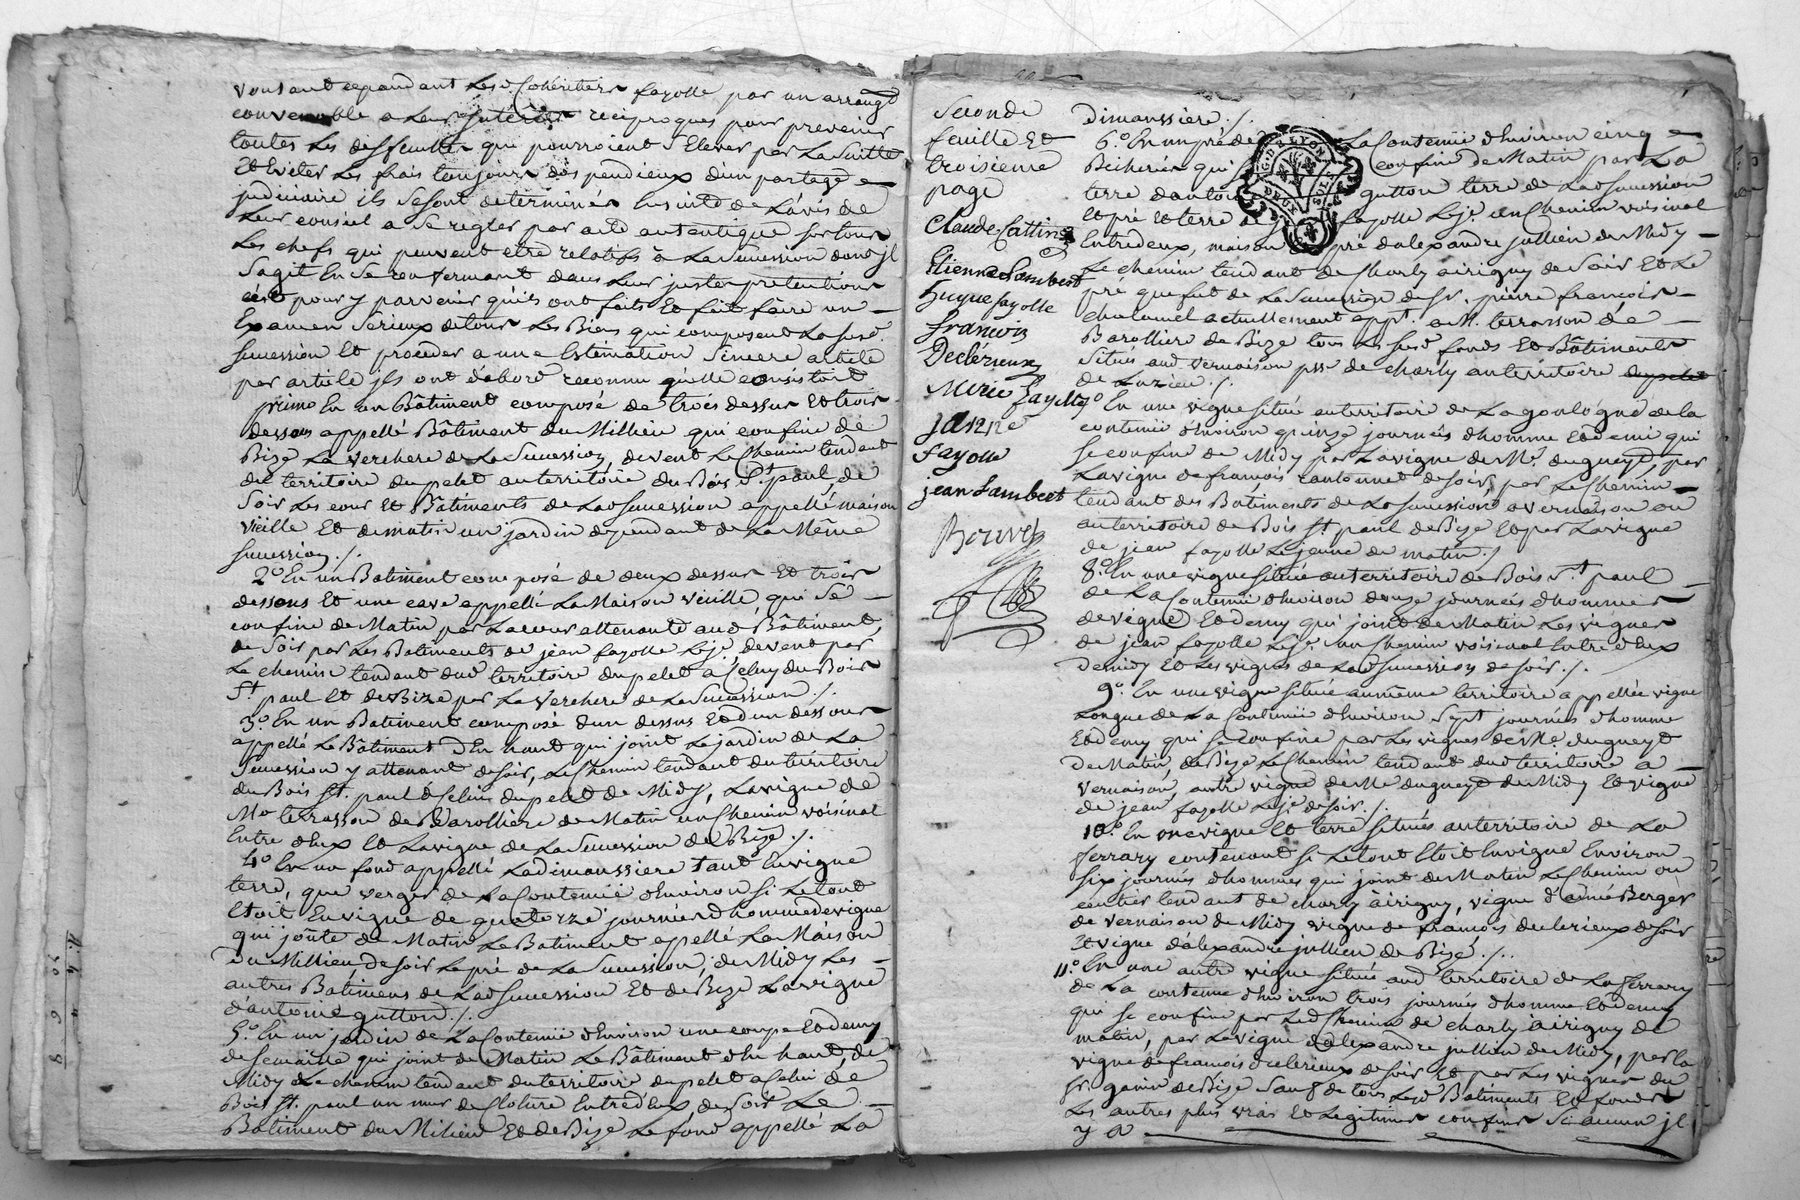 voulant cependant lesd. Cohéritiers fayolle par un arrangt
convenable a leurs interêts reciproques pour prevenir
toutes les difficultés qui pourroient s'Elever par la suitte
Et Eviter les frais toujours dispendieux d'un partage
judiciaire ils se sont determinés ensuitte de L'avis de
Leur conseil a se regler par acte autentique sur tous
Les chefs qui peuvent etre relatifs a La succession dont jl
s'agit En se renfermant dans leurs justes pretentions
c'est pour y parvenir qu'ils ont faits et fait faire un
Examen serieux de tous les Biens qui composent la susd.
succession Et proceder a une Estimation sincere article
par article jls ont d'abord reconnu qu'elle consistoit
primo En un Bâtiment composé de trois dessus Et trois
dessous appellé Bâtiment du Millieu qui confine de
Bize La verchere de la succession, devent le Chemin tendant
du territoire du pelet au territoire du Bois St. paul, de
soir les cour et Bâtiments de lad succession appellé maison
vieille Et de matin un jardin dependant de La Même
succession ./.
2o. En un Batiment composé de deux dessus Et trois
dessous Et une cave appellé La Maison vieille qui se
confine de Matin par la cour attenante aud Bâtiment,
de soir par les Batiments de jean fayolle Leje. devent par
Le chemin tendant dud territoire du pelet a celuy du Bois
St. paul Et de Bize par la verchere de la succession ./.
3o. En un Batiment composé d'un dessus Et d'un dessous
appellé Le Bâtiment d'En haut qui joint Le jardin de La
succession y attenant de soir, Le Chemin tendant du territoire
du Bois St. paul a Celui du pelet de Midy, La vigne de
Mr terrasson de Barolliere de Matin un Chemin voisinal
Entre d'Eux Et La vigne de La succession de Bize ./.
4o En un fond appellé La dimaussiere tant En vigne
terre, que verger de la Contenüe d'Environ si Le tout
Etoit En vigne de quatorze journées d'homme de vigne
qui joint de Matin Le Batiment apellé La Maison
du Millieu de soir Le pré de La succession, de Midy Les
autres Batimens de Lad succession Et de Bize La vigne
d'antoine gutton ./.
5o. En un jardin de La Contenüe d'Environ une coupe Et demy
de semaille qui joint de Matin Le Bâtiment d'En haut, de
Midy Le chemin tendant du territoire du pelet a Celui de
Bois St. paul un mur de Cloture Entre d'Eux de soir Le
Batiment du Milieu Et de Bize Le fond appellé La
seconde
feuille Et
troisieme
page
Claude Cattin
Etienne Lambert
hugue fayolle
francois
Declérieux
Marie fayolle
janne
fayolle
jean Lambert
dimaussiere ./.
6o. En un pré de La Contenüe d'Environ cinq
Bicherées qui confine de Matin par La
terre d'antoine gutton terre de Lad succession
Et pré Et terre de fayolle Leje. un Chemin voisinal
Entredeux, maison pré d'alexandre jullien de Midy
Le chemin tendant de Charly a irigny de soir Et Le
pré que fut de La succession de Sr. pierre françois
chalamel actuellement appt. a M. terrasson de
Barolliere de Bize tous les susd fonds Et Bâtiments
situés aud vernaison psse de charly au territoire du pelet
de Luzieu ./.
7o En une vigne située au territoire de La goulogne de la
contenüe d'Environ quinze journées d'homme Et demi qui
se confine de Midy par La vigne de Mr. dugueyt, par
La vigne de francois rantonnet de soir, par Le Chemin
tendant des Batiments de La succession a vernaison ou
au territoire de Bois St. paul de Bize Et par La vigne
de jean fayolle Le jeune de matin ./
8o. En une vigne située au territoire de Bois St. paul
de La Contenüe d'Environ douze journées d'hommes
de vigne Et demy qui joint de Matin Les vignes
de jean fayolle Leje. un Chemin voisinal Entre d'Eux
de midy Et Les vignes de Lad succession de soir ./.
9o. En une vigne située au même territoire appellée vigne
Longue de La Contenüe d'Environ sept journées d'homme
Et demy qui se confine par Les vignes de Mr. dugueyt
de Matin, de Bize Le Chemin tendant dud territoire a
vernaison, autre vigne de Mr dugueyt de Midy Et vigne
de jean fayolle Leje de soir ./.
10o. En une vigne Et terre situés au territoire de La
ferrary contenant si Le tout Etoit En vigne Environ
six journées d'hommes qui joint de Matin Le Chemin ou
sentier tendant de charly a irigny, vigne d'aimé Berger
de vernaison de Midy vigne de francois declerieux de soir
Et vigne d'alexandre jullien de Bize ./.
11o. En une autre vigne située aud territoire de La ferrary
de La contenue d'Environ trois journées d'homme Et demy
qui se confine par Led Chemin de charly a irigny de
matin, par La vigne d'alexandre jullien de Midy, par la
vigne de francois declerieux de soir Et par Les vignes du
Sr. ganin de Bize sauf de tous Lesd Batiments Et fonds
Les autres plus vrais Et Legitimes confins si aucun jl
y a